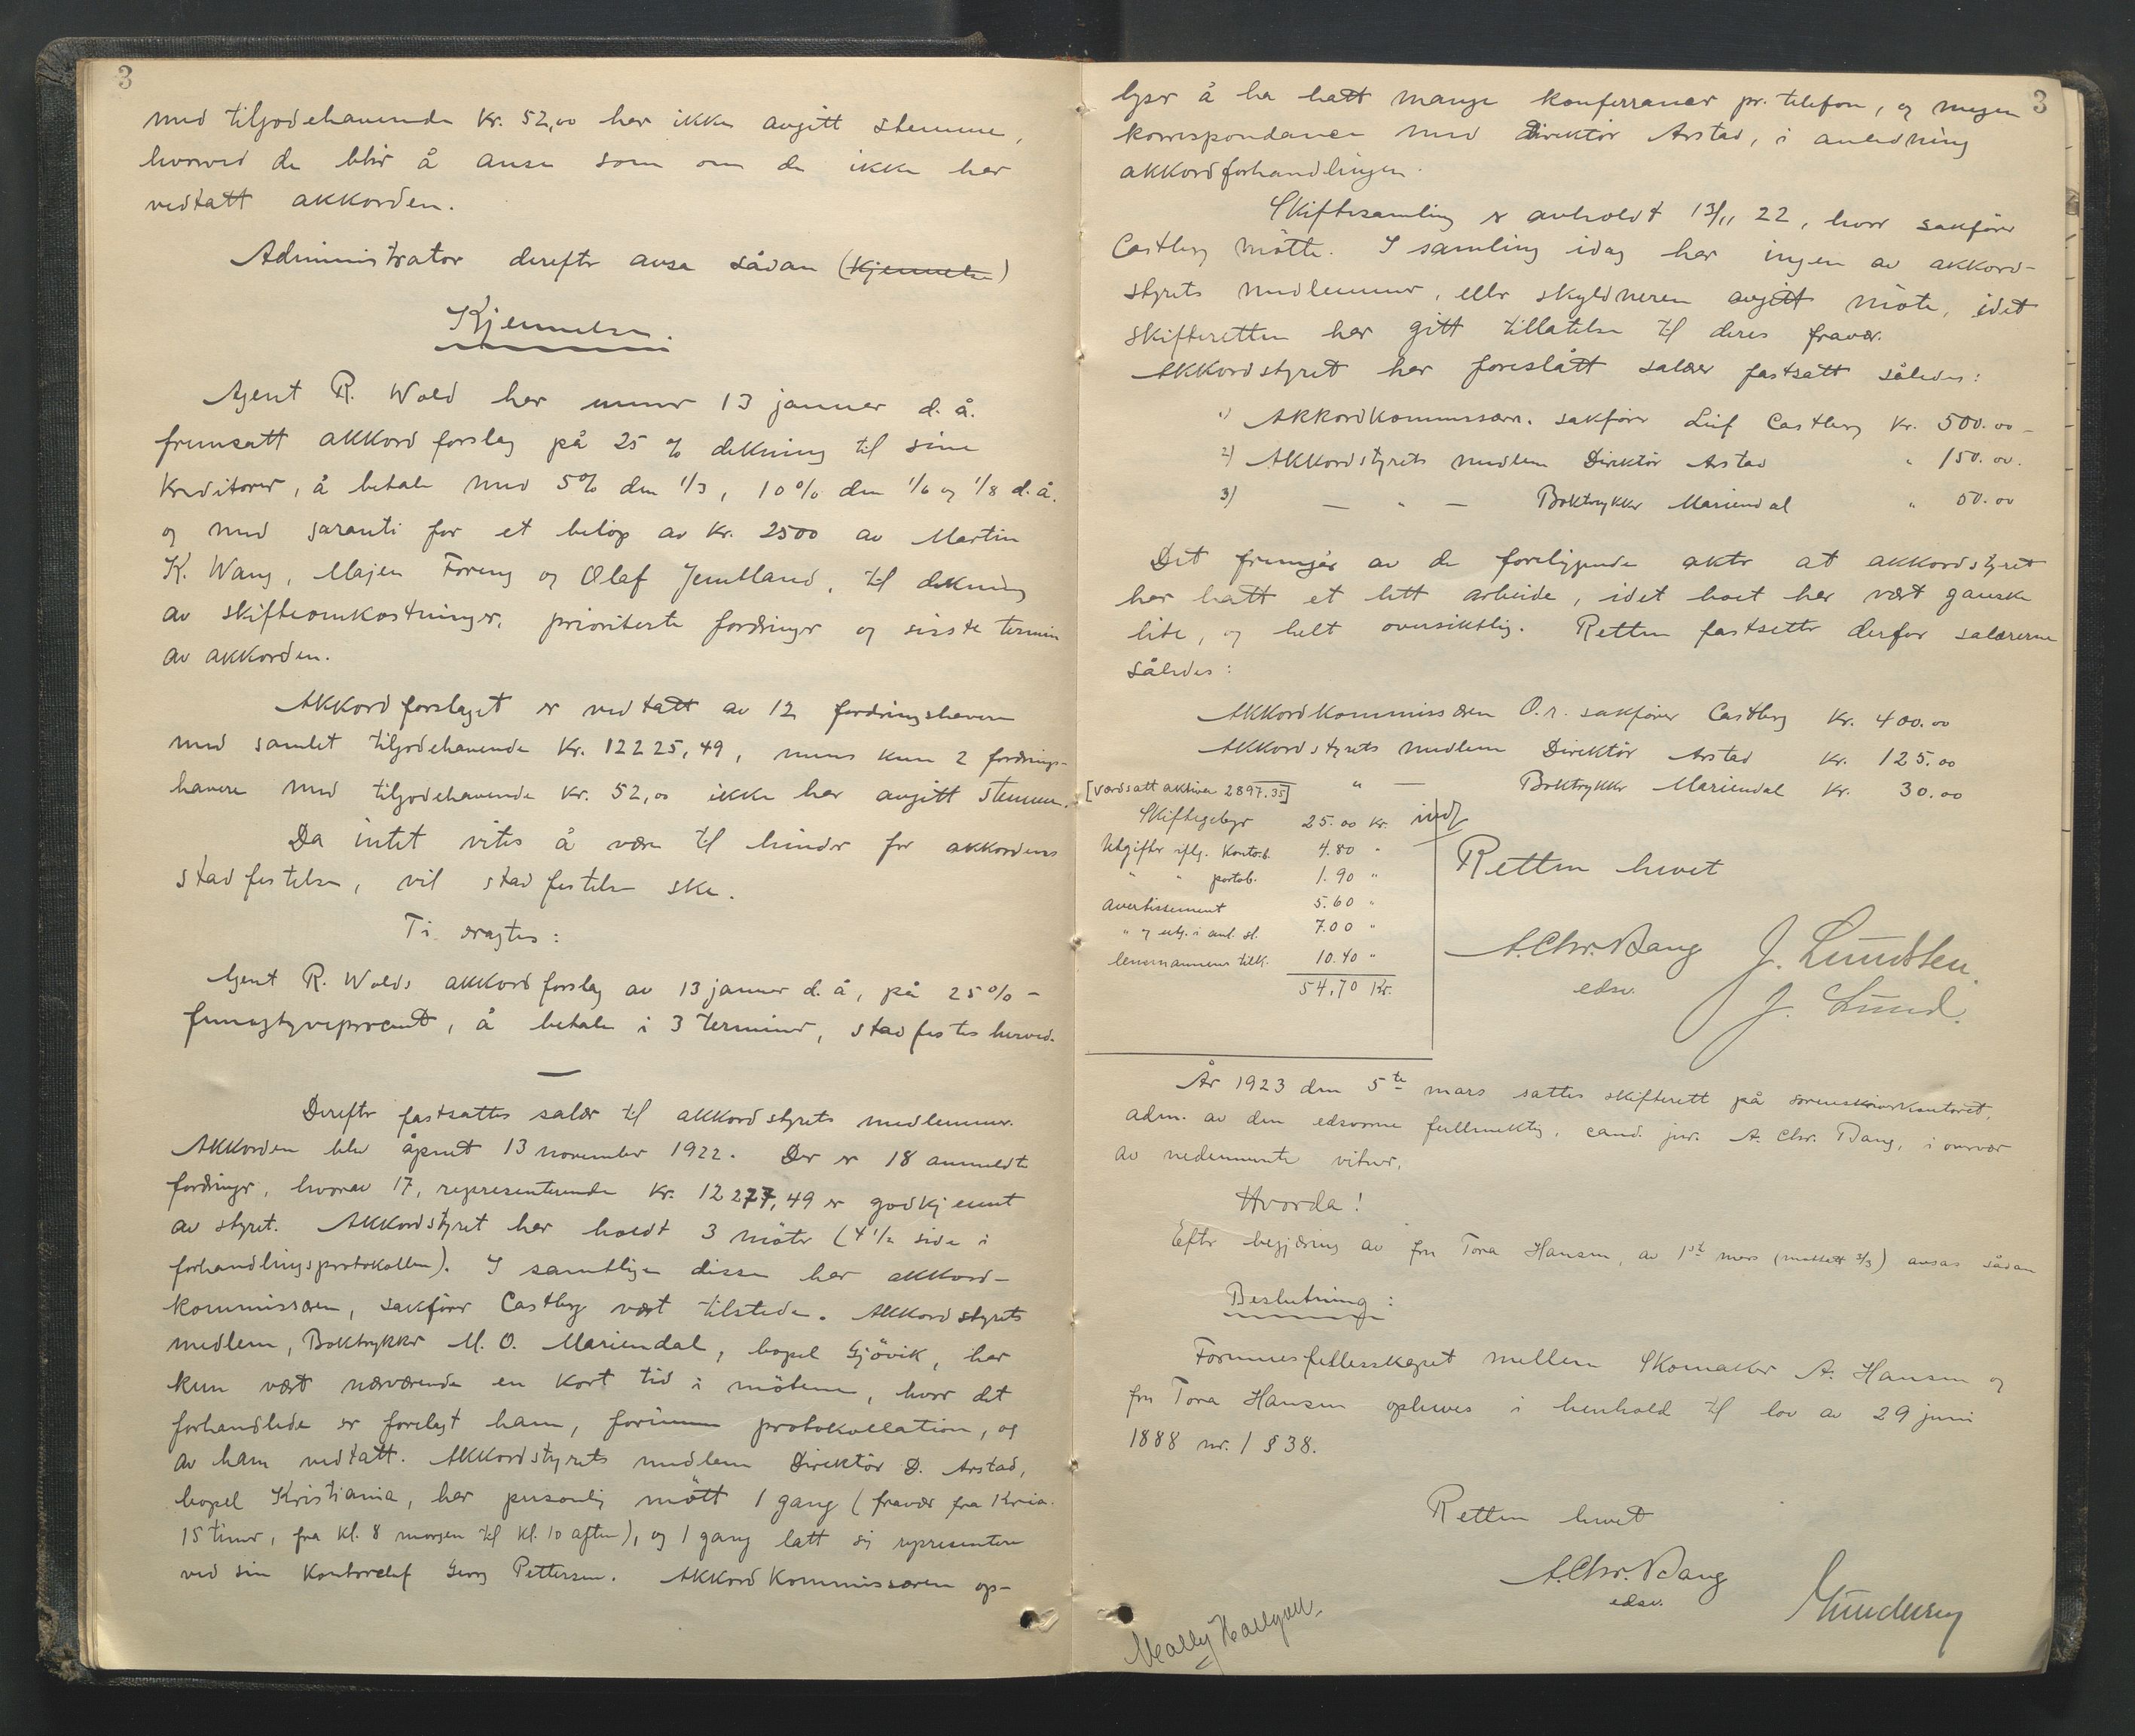 3
med tilgodehavende kr. 52,00 har ikke avgitt stemme,
hvorved de blir å anse som om de ikke har
vedtatt akkorden.
Administrator derefter avsa sådan (Kjennelse)
Kjennelse.
Agent R. Wold har under 13 januar d. å.
fremsatt akkordforslag på 25 % dekning til sine
kreditorer, å betale med 5% den 1/3, 10% den 1/6 og 1/8 d. å.
og med garanti for et beløp av kr. 2500 av Martin
K. Wang, Majen Foreng og Olaf Jemtland, til dekning
av skifteomkostninger, prioriterte fordringer og siste termin
av akkorden.
Akkordforslaget er vedtatt av 12 fordringshavere
med samlet tilgodehavende kr. 12225,49, mens kun 2 fordrings-
havere med tilgodehavende kr. 52,00 ikke har avgitt stemme.
Da intet vites å være til hinder for akkordens
stadfestelse, vil stadfestelse ske.
Ti eragtes:
Agent R. Wolds akkordforslag av 13 januar d. å, på 25% -
femogtyveprocent, å betale i 3 terminer, stadfestes herved.
—
Derefter fastsattes salær til akkordstyrets medlemmer.
Akkorden blev åpnet 13 november 1922. Der er 18 anmeldte
fordringer, hvorav 17, representerende kr. 12277,49 er godkjennt
av styret. Akkordstyret har holdt 3 möter (4 1/2 side i
forhandlingsprotokollen). I samtlige disse har akkord-
kommissæren, sakförer Castberg vært tilstede. Akkordstyrets
medlem, Boktrykker M. O. Mariendal, bopel Gjövik, har
kun vært nærværende en kort tid i möterne, hvor det
forhandlede er forelagt ham, forinnen protokollation, og
av ham vedtatt. Akkordstyrets medlem Direktör D. Arstad,
bopel Kristiania, har personlig mött 1 gang (fravær fra Kr.ia.
15 timer, fra kl. 8 morgen til kl. 10 aften), og 1 gang latt sig representere
ved sin kontorchef Georg Pettersen. Akkordkommissæren op-
3
lyser å ha hatt mange konferranser pr. telefon, og megen
korrespondance med direktör Arstad, i anledning
akkordforhandlingen.
Skiftesamling er avholdt 13/11 22, hvor sakförer
Castberg mötte. I samling idag har ingen av akkord-
styrets medlemmer, eller skyldneren avgitt möte, idet
skifteretten har gitt tillatelse til deres fravær.
Akkordstyret har foreslått salær fastsatt således:
1) Akkordkommissæren. sakförer Leif Castberg kr. 500.00 -
2) Akkordstyrets medlem Direktör Arstad " 150.00.
3) — " — Boktrykker Mariendal " 50.00
Det fremgår av de foreliggende akter at akkordstyret
har hatt et lett arbeide, idet boet har vært ganske
lite, og helt oversiktlig. Retten fastsetter derfor salærerne
således:
Akkordkommissæren O.r. sakförer Castberg kr. 400.00
Akkordstyrets medlem Direktör Arstad kr. 125.00
" — Boktrykker Mariendal kr. 30.00
[værdsatt aktiva 2897.35]
Skiftegebyr 25.00 kr.
Utgifter iflg. Kontob. 4.80 "
" " portob. 1.90 "
Avertissement 5.60 "
" og utg. i anl. sl. 7.00 "
lensmannens tilk. 10.40 "
54,70 Kr.
Retten hevet
A. Chr. Bang
edsv.
J. Lundsten
J. Lund.
År 1923 den 5te mars sattes skifterett på sorenskriverkontoret,
adm. av den edsvorne fullmektig, cand. jur. A. Chr. Bang, i overvær
av nedennevnte vitner,
Hvorda!
Efter begjæring av fru Tora Hansen, av 1st mars (mottatt 3/3) avsas sådan
Beslutning:
Formuesfellesskapet mellem Skomaker A. Hansen og
fru Tora Hansen opheves i henhold til lov av 29 juni
1888 nr. 1 § 38.
Retten hevet
A. Chr. Bang
edsv.